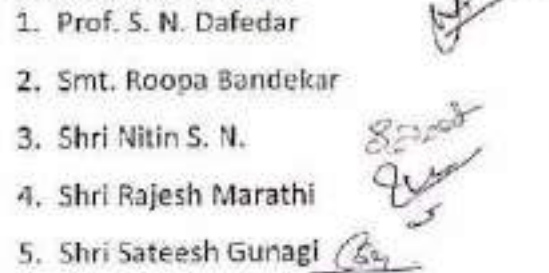 1. Prof. S. N. Dafedar
2. Smt. Roopa Bandekar
3. Shri Nitin S. N.
4. Shri Rajesh Marathi
5. Shri Sateesh Gunagi